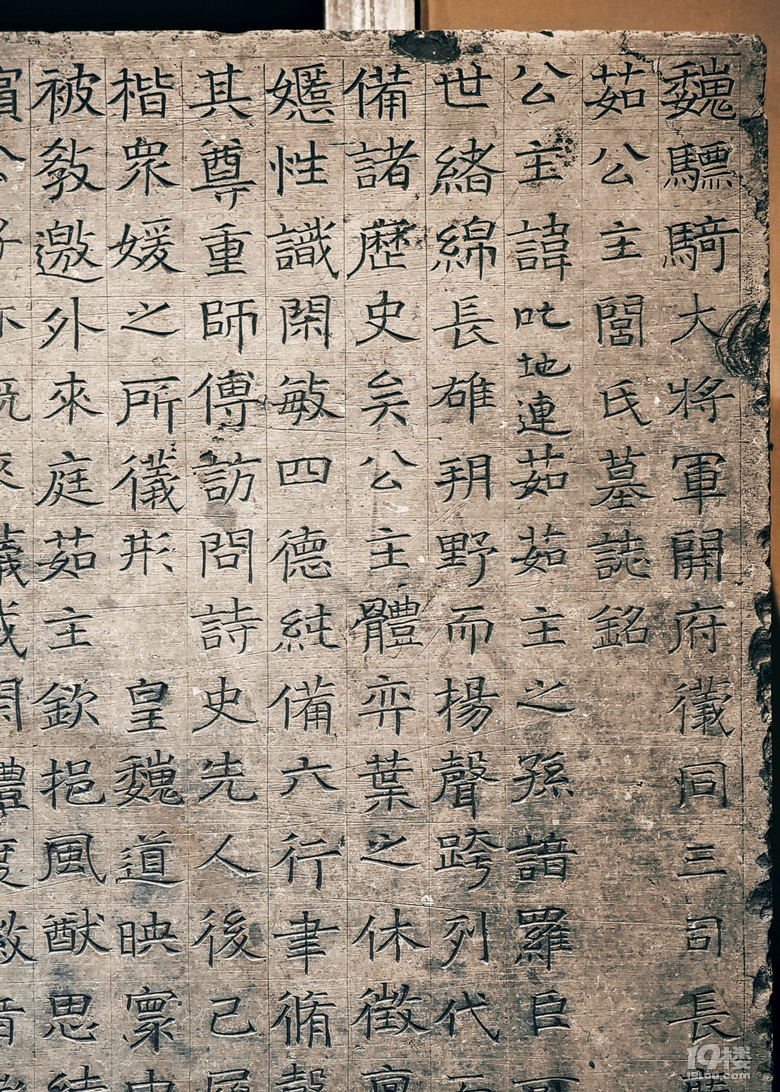 魏驃騎大將軍開府儀同三司長
茹公主閭氏墓誌銘
公主諱叱地連茹茹主之孫諳羅臣
世緒綿長雄朔野而揚聲跨列代
備諸歷史矣公主體弈葉之休徵稟
嫕性識閑敏四德純備六行聿脩聲
其尊重師傅訪問詩史先人後己
楷衆媛之所儀形 皇魏道映寰中
被敎邀外來庭茹主欽挹風猷思結
19楼
19lou.com